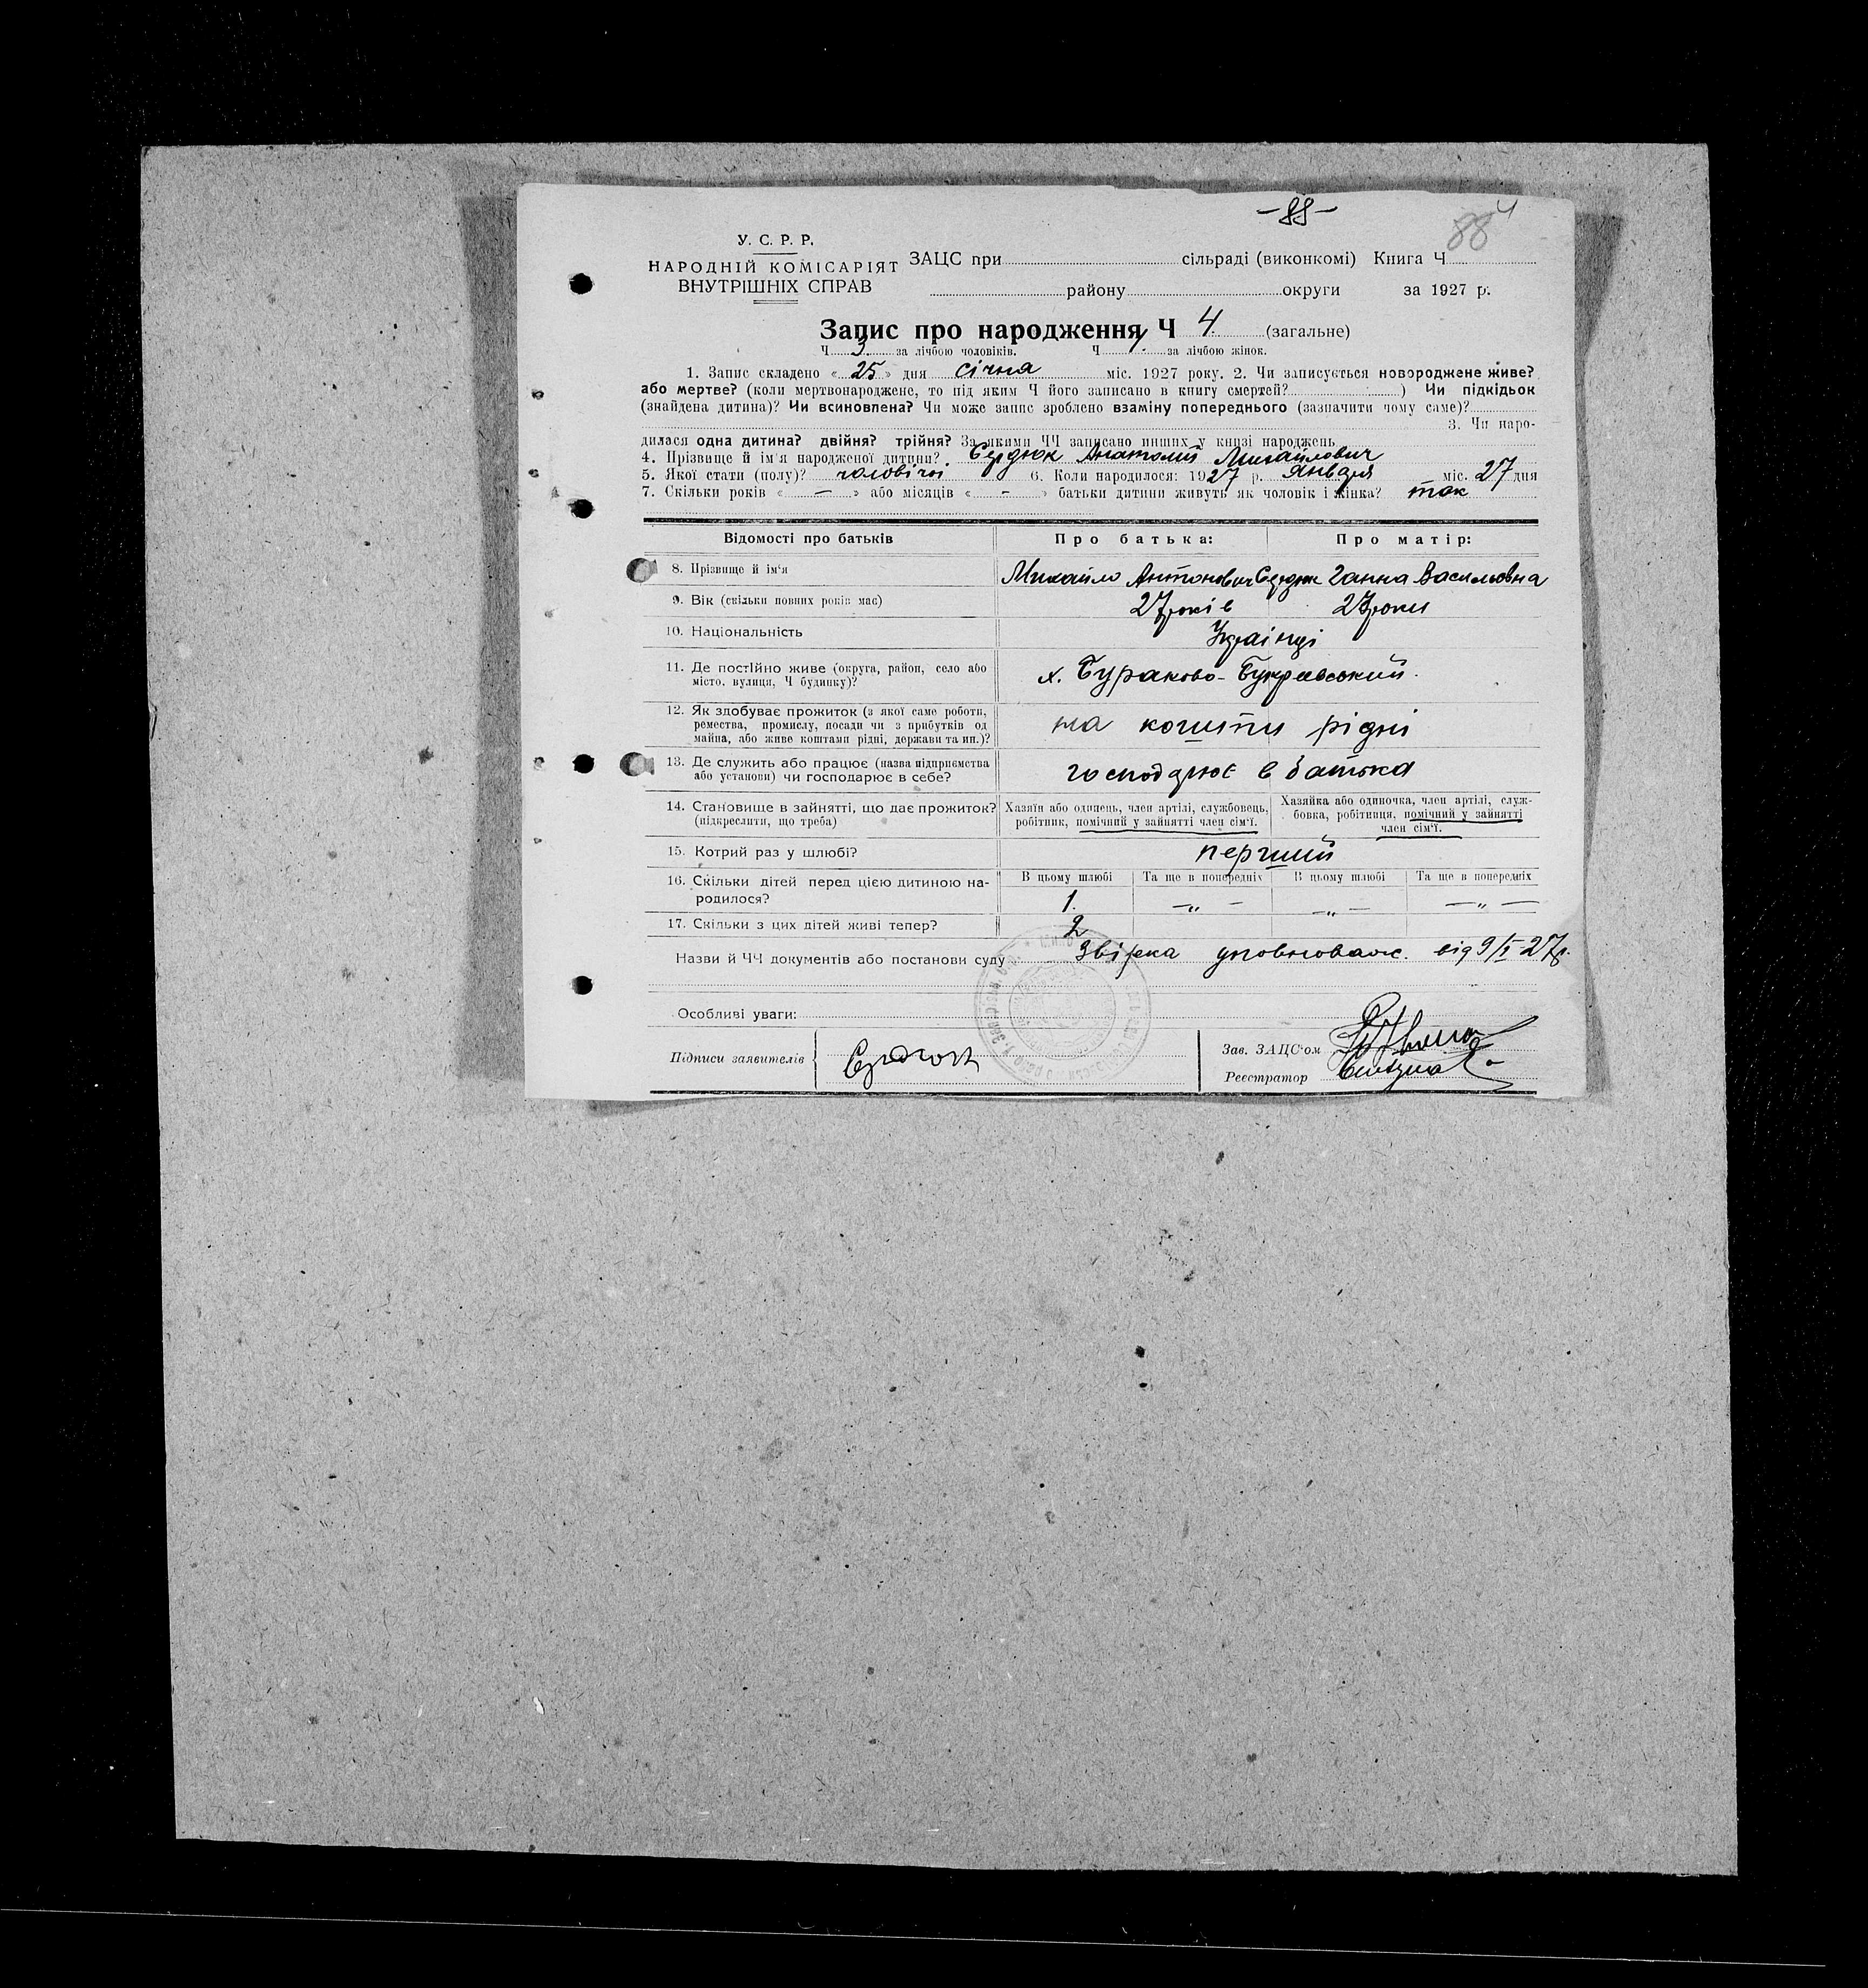 -88-
88 4
У. С. Р. Р.
НАРОДНІЙ КОМІСАРІЯТ
ВНУТРІШНІХ СПРАВ
ЗАЦС при сільраді (виконкомі) Книга Ч
району округи за 1927 р.
Запис про народження Ч 4 (загальне)
Ч 3 за лічбою чоловіків. Ч 1 за лічбою жінок.
1. Запис складено « 25 » дня січня міс. 1927 року. 2. Чи записується новороджене живе?
або мертве? (коли мертвонароджене, то під яким Ч його записано в книгу смертей? ) Чи підкідьок
(знайдена дитина)? Чи всиновлена? Чи може запис зроблено взаміну попереднього (зазначити чому саме)?
3. Чи наро-
дилася одна дитина? двійня? трійня? За якими ЧЧ записано инших у книзі народжень
4. Прізвище й ім'я народженої дитини? Сердюк Анатолий Михайлович
5. Якої стати (полу)? чоловічої 6. Коли народилося: 1927 р. Января міс. 27 дня
7. Скільки років « – » або місяців « – » батьки дитини живуть як чоловік і жінка? так
Відомості про батьків Про батька: Про матір:
8. Прізвище й ім'я Михайло Антонович Сердюк Ганна Васильовна
9. Вік (скільки повних років має) 27 років 27 роки
10. Національність Українці
11. Де постійно живе (округа, район, село або
місто, вулиця, Ч будинку)? х. Бураково-
12. Як здобуває прожиток (з якої саме роботи,
ремества, промислу, посади чи з прибутків од
майна, або живе коштами рідні, держави та ин.)? на кошти рідні
13. Де служить або працює (назва підприємства
або установи) чи господарює в себе? господарює в батька
14. Становище в зайнятті, що дає прожиток?
(підкреслити, що треба)
Хазяїн або одинець, член артілі, службовець,
робітник, помічний у зайнятті член сім'ї.
Хазяйка або одиночка, член артілі, служ-
бовка, робітниця, помічний у зайнятті
член сім'ї.
15. Котрий раз у шлюбі? перший
16. Скільки дітей перед цією дитиною на-
родилося?
В цьому шлюбі Та ще в попередніх В цьому шлюбі Та ще в попередніх
1. –„– –„– –„–
17. Скільки з цих дітей живі тепер? 2
Назви й ЧЧ документів або постанови суду Звірка уповноваж. від 9/I-27р.
Особливі уваги:
Підписи заявителів Сердюк
Зав. ЗАЦС'ом
Реєстратор